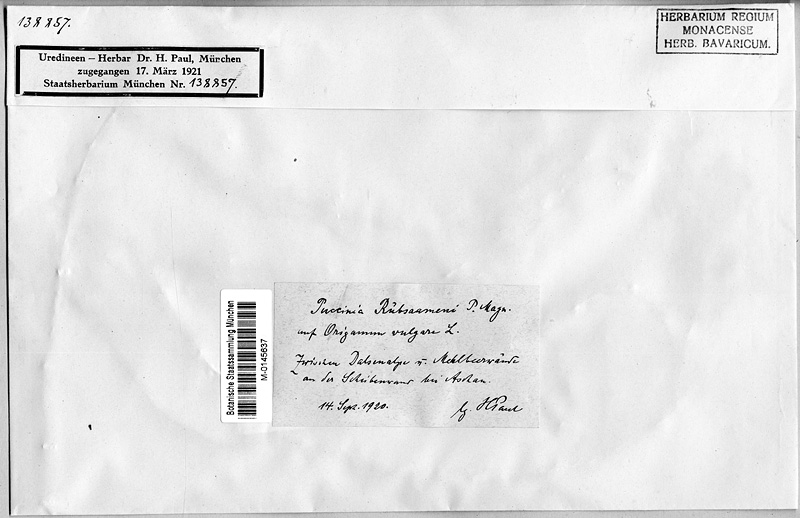 138857.
Uredineen – Herbar Dr. H. Paul, München
zugegangen 17. März 1921
Staatsherbarium München Nr. 138857.
HERBARIUM REGIUM
MONACENSE
HERB. BAVARICUM.
Botanische Staatssammlung München
M-0145637
Puccinia Rübsaameni P. Magn.
auf Origanum vulgare L.
Zwischen Dalsenalpe u. Mehlbeerwände
an der Scheibenwand bei Aschau.
14. Sept. 1920. lg. H Paul